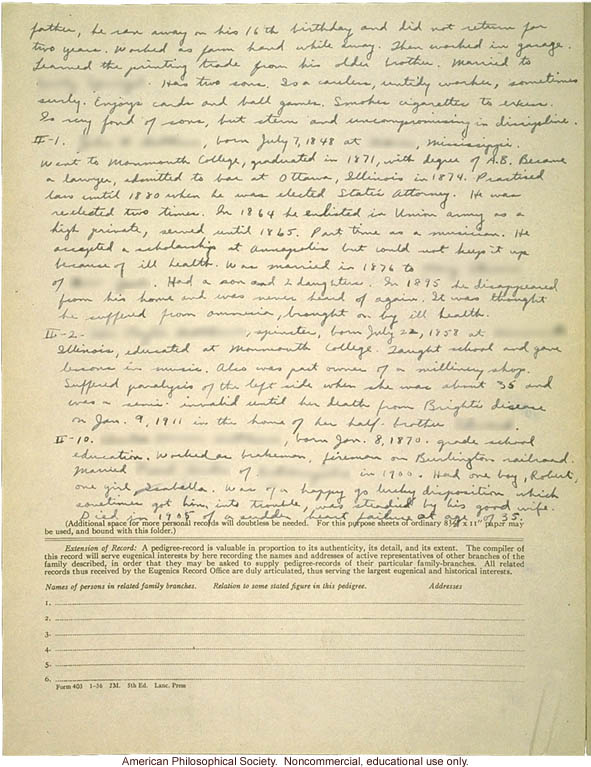 father, he ran away on his 16th birthday and did not return for
two years. Worked as farm hand while away. Then worked in garage.
Learned the printing trade from his older brother. Married to
. Has two sons. Is a careless, untidy worker, sometimes
surly. Enjoys cards and ball games. Smokes cigarettes to excess.
Is very fond of sons, but stern and uncompromising in discipline.
II-1. , born July 7, 1848 at , Mississippi.
Went to Monmouth College, graduated in 1871, with degree of A.B. Became
a lawyer, admitted to bar at Ottawa, Illinois in 1874. Practised
law until 1880 when he was elected State's Attorney. He was
reelected two times. In 1864 he enlisted in Union army as a
high private, served until 1865. Part time as a musician. He
accepted a scholarship at Annapolis but could not keep it up
because of ill health. Was married in 1876 to
of . Had a son and 2 daughters. In 1895 he disappeared
from his home and was never heard of again. It was thought
he suffered from amnesia, brought on by ill health.
II-2- , spinster, born July 22, 1858 at
Illinois, educated at Monmouth College. Taught school and gave
lessons in music. Also was part owner of a millinery shop.
Suffered paralysis of the left side when she was about 35 and
was a semi-invalid until her death from Bright's disease
on Jan. 9, 1911 in the home of her half-brother
II-10. , born Jan. 8, 1870. grade school
education. Worked as brakeman, fireman on Burlington railroad.
Married of in 1900. Had one boy, Robert,
one girl, Isabella. Was of a happy go lucky disposition which
sometimes got him into trouble, was steadied by his good wife.
Died in 1905 of a sudden heart failure at age of 35.
(Additional space for more personal records will doubtless be needed. For this purpose sheets of ordinary 8½" x 11" paper may
be used, and bound with this folder.)
Extension of Record: A pedigree-record is valuable in proportion to its authenticity, its detail, and its extent. The compiler of
this record will serve eugenical interests by here recording the names and addresses of active representatives of other branches of the
family described, in order that they may be asked to supply pedigree-records of their particular family-branches. All related
records thus received by the Eugenics Record Office are duly articulated, thus serving the largest eugenical and historical interests.
Names of persons in related family branches. Relation to some stated figure in this pedigree. Addresses
1.
2.
3.
4.
5.
6.
Form 403 1-36 2M. 5th Ed. Lanc. Press
American Philosophical Society. Noncommercial, educational use only.